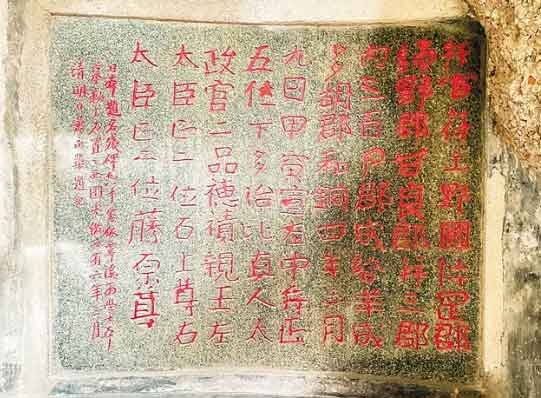 弁官符上野國片罡郡
緑野郡甘良郡并三郡
内三百戸郡成給羊成
多胡郡和銅四年三月
九日甲寅宣左中弁正
五位下多治比真人太
政官二品穂積親王左
太臣正二位石上尊右
太臣正二位藤原尊
日本
上石西園有六年三月
清明